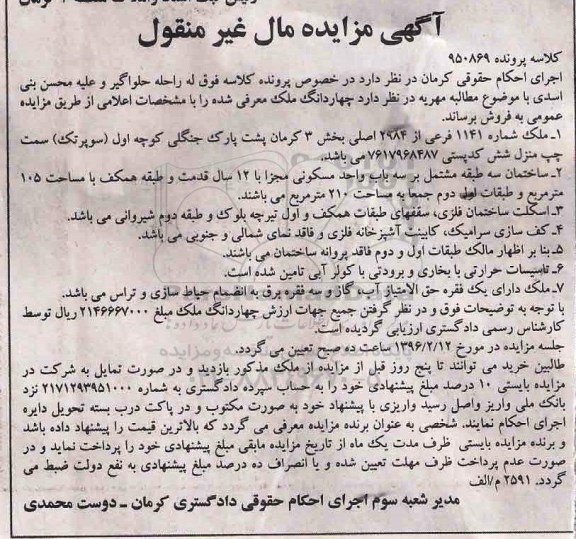 آگهی مزایده مال غیر منقول
کلاسه پرونده ۹۵۰۸۶۹
اجرای احکام حقوقی کرمان در نظر دارد در خصوص پرونده کلاسه فوق له راحله حلواگیر و علیه محسن بنی
اسدی با موضوع مطالبه مهریه در نظر دارد چهاردانگ ملک معرفی شده را با مشخصات اعلامی از طریق مزایده
عمومی به فروش برساند.
۱ـ ملک شماره ۱۱۴۱ فرعی از ۲۹۸۴ اصلی بخش ۳ کرمان پشت پارک جنگلی کوچه اول (سوپرتک) سمت
چپ منزل شش کدپستی ۷۶۱۷۹۶۸۴۸۷ می باشد.
۲ـ ساختمان سه طبقه مشتمل بر سه باب واحد مسکونی مجزا با ۱۲ سال قدمت و طبقه همکف با مساحت ۱۰۵
مترمربع و طبقات اول دوم جمعا به مساحت ۲۱۰ مترمربع می باشند.
۳ـ اسکلت ساختمان فلزی، سقفهای طبقات همکف و اول تیرچه بلوک و طبقه دوم شیروانی می باشد.
۴ـ کف سازی سرامیک، کابینت آشپزخانه فلزی و فاقد نمای شمالی و جنوبی می باشد.
۵ـ بنا بر اظهار مالک طبقات اول و دوم فاقد پروانه ساختمان می باشند.
۶ـ تاسیسات حرارتی با بخاری و برودتی با کولر آبی تامین شده است.
۷ـ ملک دارای یک فقره حق الامتیاز آب، گاز و سه فقره برق به انضمام حیاط سازی و تراس می باشد.
با توجه به توضیحات فوق و در نظر گرفتن جمیع جهات ارزش چهاردانگ ملک مبلغ ۲۱۴۶۶۶۷۰۰۰ ریال توسط
کارشناس رسمی دادگستری ارزیابی گردیده است.
جلسه مزایده در مورخ ۱۳۹۶/۲/۱۲ ساعت ده صبح تعیین می گردد.
طالبین خرید می توانند تا پنج روز قبل از مزایده از ملک مذکور بازدید و در صورت تمایل به شرکت در
مزایده بایستی ۱۰ درصد مبلغ پیشنهادی خود را به حساب سپرده دادگستری به شماره ۲۱۷۱۲۹۳۹۵۱۰۰۰ نزد
بانک ملی واریز واصل رسید واریزی با پیشنهاد خود به صورت مکتوب و در پاکت درب بسته تحویل دایره
اجرای احکام نمایند. شخصی به عنوان برنده مزایده معرفی می گردد که بالاترین قیمت را پیشنهاد داده باشد
و برنده مزایده بایستی ظرف مدت یک ماه از تاریخ مزایده مابقی مبلغ پیشنهادی خود را پرداخت نماید و در
صورت عدم پرداخت ظرف مهلت تعیین شده و یا انصراف ده درصد مبلغ پیشنهادی به نفع دولت ضبط می
گردد. ۲۵۹۱ م/الف
مدیر شعبه سوم اجرای احکام حقوقی دادگستری کرمان ـ دوست محمدی